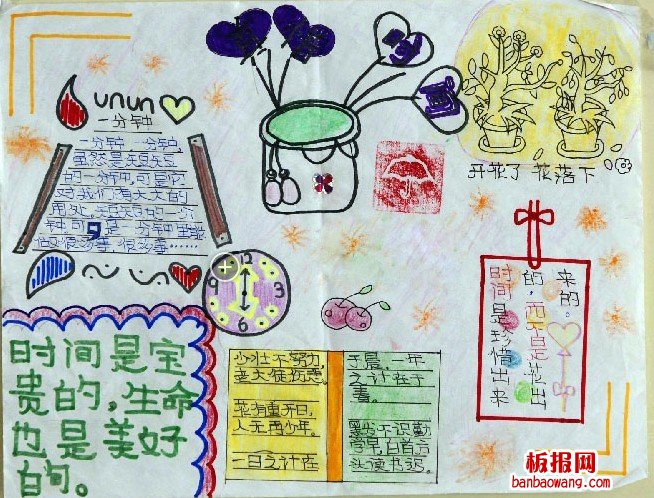 unun
一分钟
一分钟,一分钟,
虽然是短短
的一分钟,可是它
对我们有大大的
用处,短短的一分
一分钟里能
做很多事很多事……
开花了 花落下
时间是珍惜出来
的,而不是花出
来的。
时间是宝
贵的,生命
也是美好
的。
少壮不努力,
老大徒伤悲。
花有重开日,
人无再少年。
一日之计在
于晨,一年
之计在于
春。
黑发不识勤
学早,白首方
头读书迟。
板报网
banbaowang.com